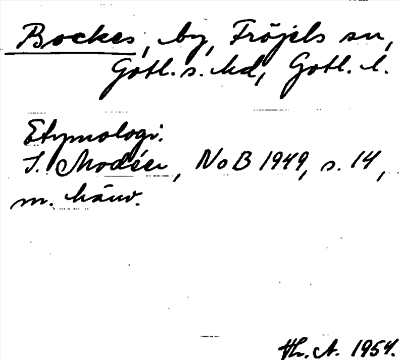 Bockes, by, Fröjels sn,
Gotl. s. hd, Gotl. l.
Etymologi.
I. Modéer, NoB 1949, s. 14,
m. hänv.
Th. A. 1954.